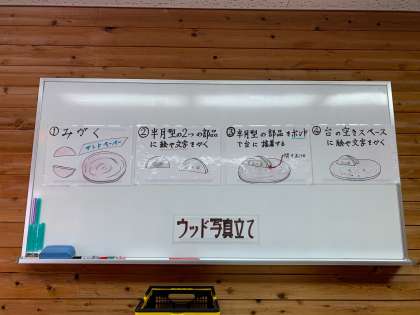 ①みがく
サンドペーパー
②半月型の2つの部品
に絵や文字をかく
③半月型の部品をボンド
で台に接着する
④台の空きスペース
に絵や文字をかく
ウッド写真立て